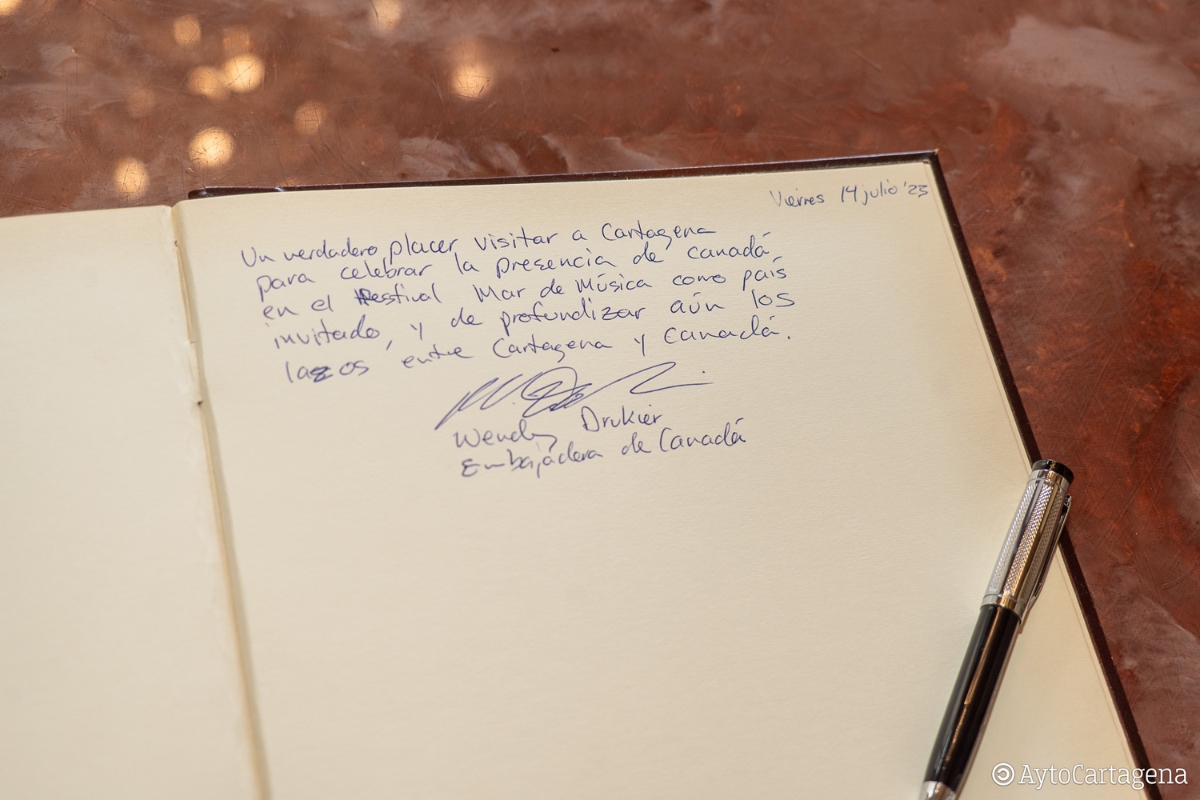 Viernes 14 julio '23
Un verdadero placer visitar a Cartagena
para celebrar la presencia de Canadá
en el Festival Mar de Música como país
invitado, y de profundizar aún los
lazos entre Cartagena y Canadá.
Wendy Drukier
Embajadora de Canadá
AytoCartagena